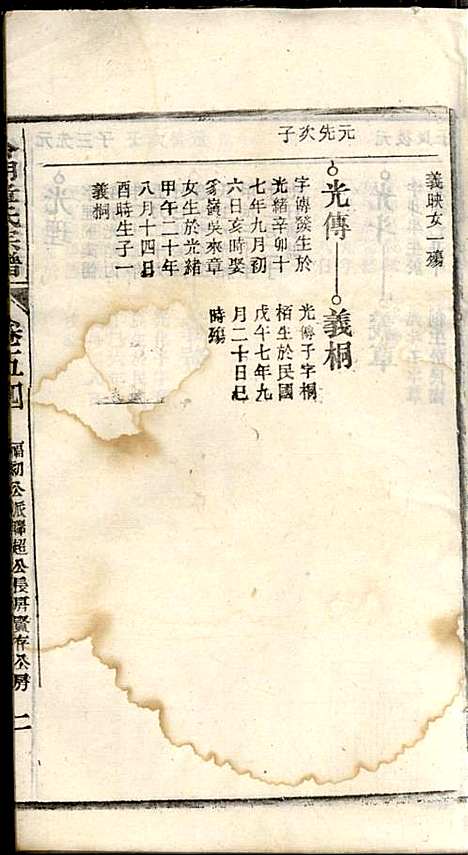 義映女一殤
元先次子
光傳
義桐
字傳發生於
光緒辛卯十
七年九月初
六日亥時娶
嶺吳來章
女生於光緒
甲午二十年
八月十四日
酉時生子一
義桐
光傳子字桐
栢生於民國
戊午七年九
月二十日巳
時殤
氏宗譜
卷五四
福初公派聯超公長房賢存公房
二